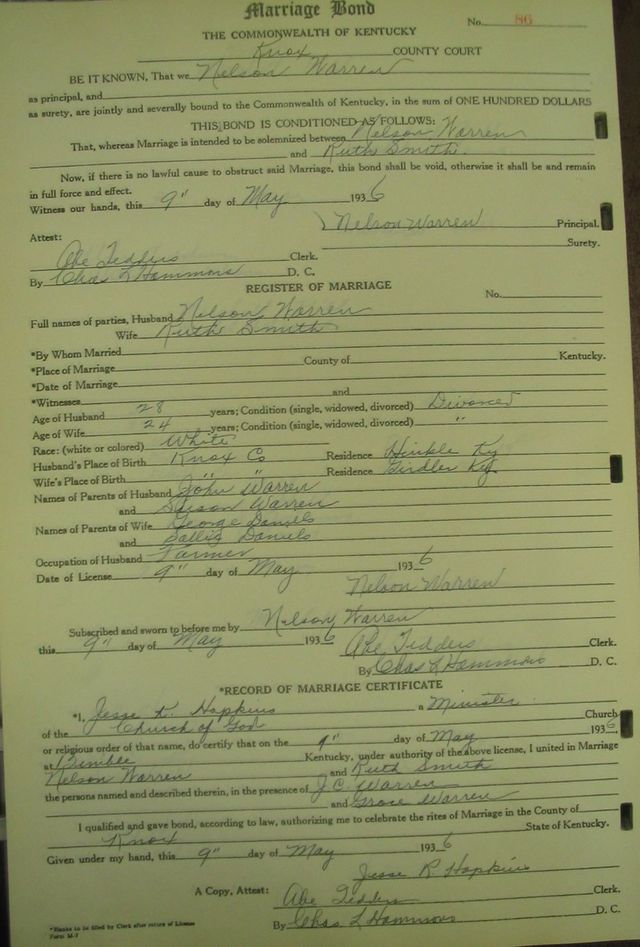 Marriage Bond
No. 86
THE COMMONWEALTH OF KENTUCKY
Knox COUNTY COURT
BE IT KNOWN, That we Nelson Warren
as principal, and
as surety, are jointly and severally bound to the Commonwealth of Kentucky, in the sum of ONE HUNDRED DOLLARS
THIS BOND IS CONDITIONED AS FOLLOWS:
That, whereas Marriage is intended to be solemnized between Nelson Warren
and Ruth Smith.
Now, if there is no lawful cause to obstruct said Marriage, this bond shall be void, otherwise it shall be and remain
in full force and effect.
Witness our hands, this 9" day of May 1936
Nelson Warren Principal.
Surety.
Attest:
Abe Tedders Clerk.
By Chas L Hammons D. C.
REGISTER OF MARRIAGE
No.
Full names of parties, Husband Nelson Warren
Wife Ruth Smith
*By Whom Married
*Place of Marriage County of Kentucky.
*Date of Marriage
*Witnesses and
Age of Husband 28 years; Condition (single, widowed, divorced) Divorced
Age of Wife 24 years; Condition (single, widowed, divorced) "
Race: (white or colored) White
Husband's Place of Birth Knox Co Residence Hinkle Ky
Wife's Place of Birth " " Residence Girdler Ky
Names of Parents of Husband John Warren
and Susan Warren
Names of Parents of Wife George Daniels
and Sallie Daniels
Occupation of Husband Farmer
Date of License 9" day of May 1936
Nelson Warren
Subscribed and sworn to before me by Nelson Warren
this 9" day of May 1936 Abe Tedders Clerk.
By Chas L Hammons D. C.
*RECORD OF MARRIAGE CERTIFICATE
*I, Jesse R. Hopkins a Minister
of the Church of God Church
or religious order of that name, do certify that on the 9" day of May 1936
at Bimble Kentucky, under authority of the above license, I united in Marriage
Nelson Warren and Ruth Smith
the persons named and described therein, in the presence of J C Warren
and Grace Warren
I qualified and gave bond, according to law, authorizing me to celebrate the rites of Marriage in the County of
Knox State of Kentucky.
Given under my hand, this 9" day of May 1936
Jesse R Hopkins
A Copy, Attest: Abe Tedders Clerk.
By Chas L Hammons D. C.
*Blanks to be filled by Clerk after return of License
Form M-7